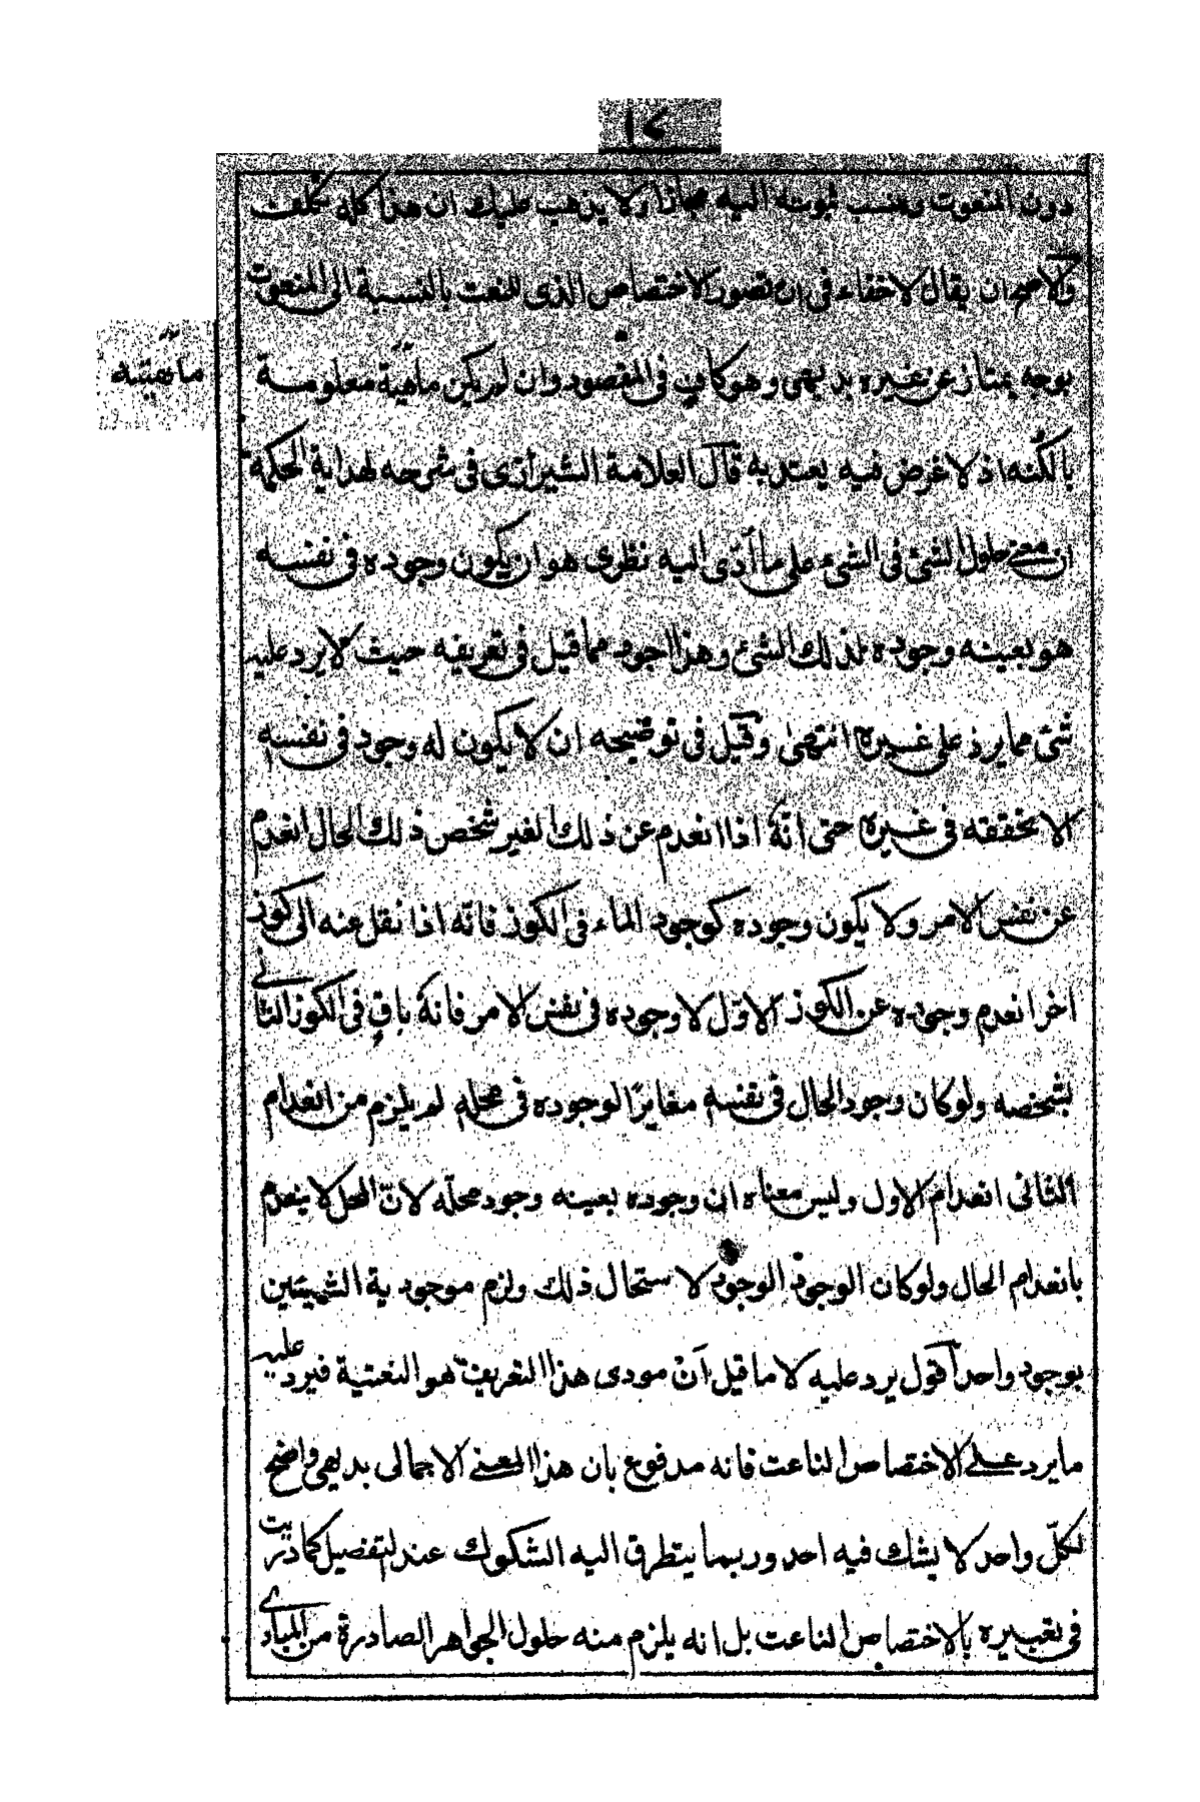 ١٢
دون المنعوت وينسب ثبوته اليه مجازا ولا يذهب عليك ان هذا كله تكلف
والاصح ان يقال لا خفاء في ان تصور الاختصاص الذى للنعت بالنسبة الى المنعوت
بوجه يمتاز عن غيره بديهى وهو كاف فى المقصود وان لم يكن ماهية معلومة
ماهيته
بالكنه اذ لا غرض فيه يعتد به قال العلامة الشيرازى فى شرحه لهداية الحكمة
ان معنى حلول الشئ فى الشئ على ما أدّى اليه نظرى هو ان يكون وجوده فى نفسه
هو بعينه وجوده لذلك الشئ وهذا اجود مما قيل فى تعريفه حيث لا يرد عليه
شئ مما يرد على غيره انتهى وقيل فى توضيحه ان لا يكون له وجود فى نفسه
الا تحققه فى غيره حتى انه اذا انعدم عن ذلك الغير شخص ذلك الحال انعدم
عن نفس الامر ولا يكون وجوده كوجود الماء فى الكوز فانّه اذا نقل عنه الى كوز
اخر انعدم وجوده عن الكوز الاوّل لا وجوده فى نفس الامر فانه باقٍ فى الكوز الثانى
بشخصه ولو كان وجود الحال فى نفسه مغايرًا لوجوده فى محله لم يلزم من انعدام
الثانى انعدام الاول وليس معناه ان وجوده بعينه وجود محلّه لانّ المحل لا ينعدم
بانعدام الحال ولو كان الوجود الوجود لا ستحال ذلك ولزم موجودية الشيئين
بوجود واحد اقول يرد عليه لا ما قيل انّ مودى هذا التعريف هو النعتية فيرد عليه
ما يرد على الاختصاص الناعت فانه مدفوع بان هذا المعنى الاجمالى بديهى واضح
لكلّ واحد لا يشك فيه احد وربما يتطرق اليه الشكوك عند التفصيل كما دريت
فى تفسيره بالاختصاص الناعت بل انه يلزم منه حلول الجواهر الصادرة من المبادى